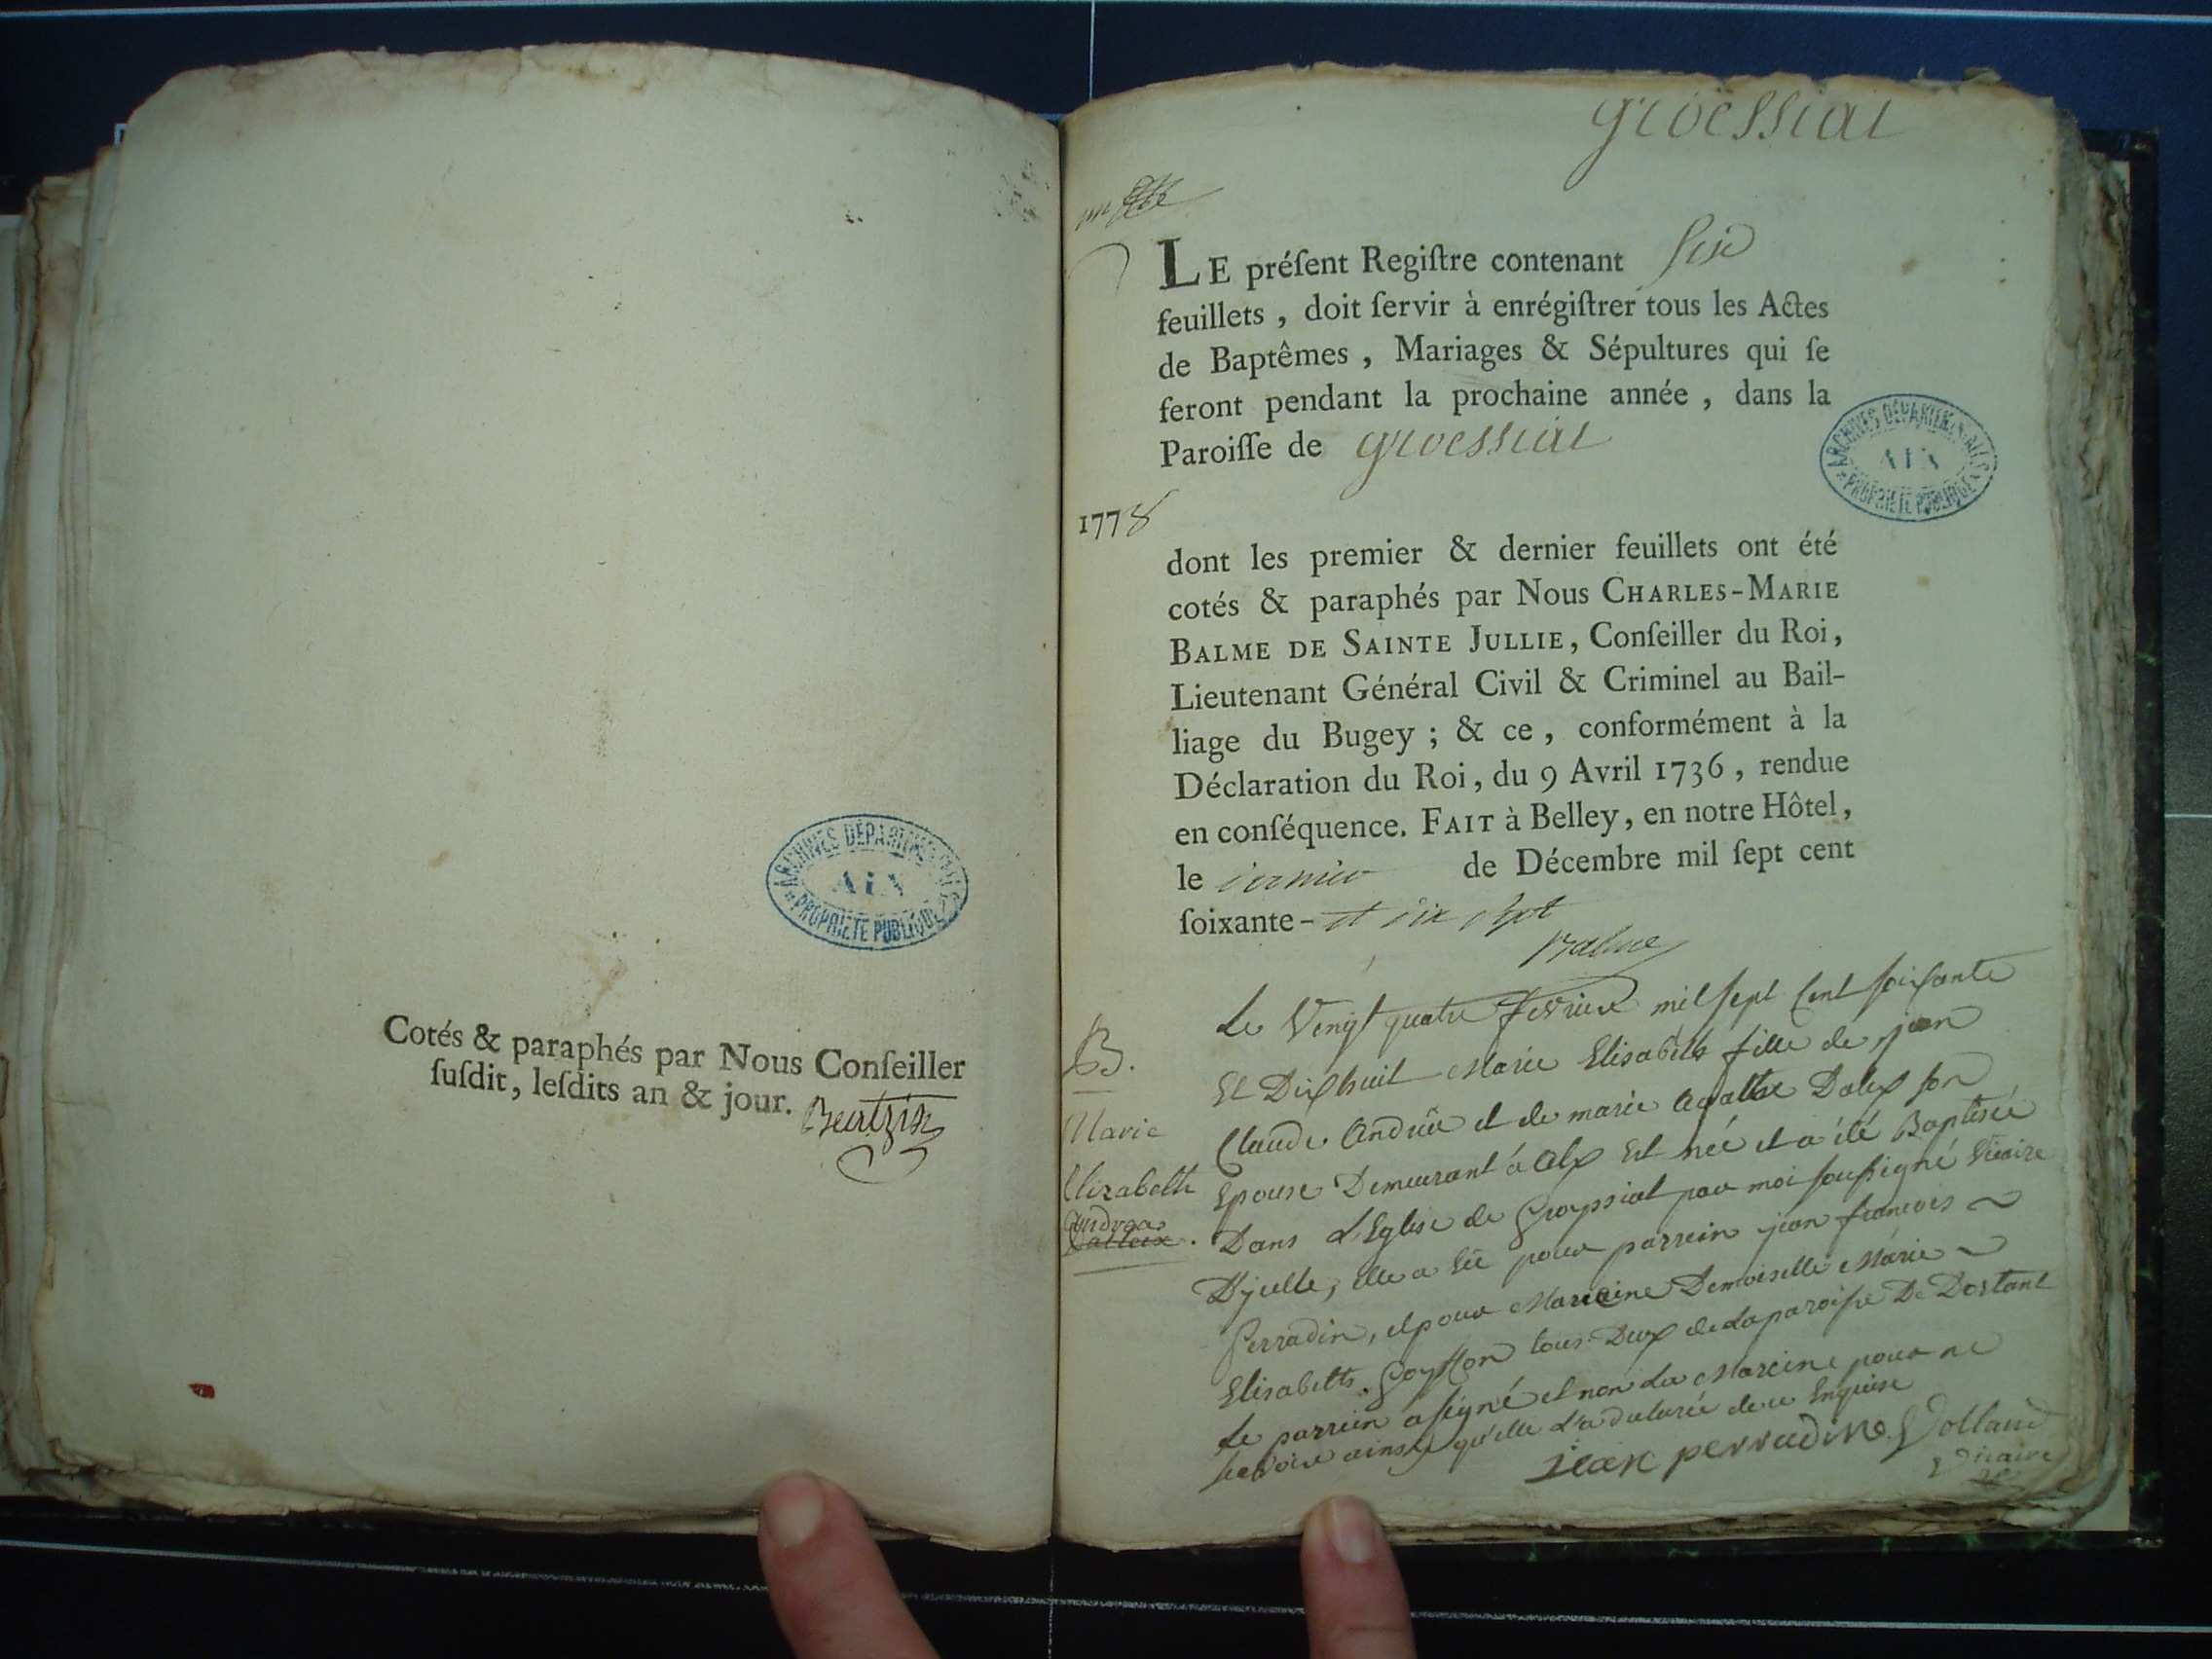 Cotés & paraphés par Nous Conſeiller
ſuſdit, leſdits an & jour.
ARCHIVES DEPARTEMENTALES
AIN
PROPRIETE PUBLIQUE
groessiat
LE préſent Regiſtre contenant Six
feuillets, doit ſervir à enrégiſtrer tous les Actes
de Baptêmes, Mariages & Sépultures qui ſe
feront pendant la prochaine année, dans la
Paroiſſe de groessiat
ARCHIVES DEPARTEMENTALES
AIN
PROPRIETE PUBLIQUE
1778
dont les premier & dernier feuillets ont été
cotés & paraphés par Nous CHARLES-MARIE
BALME DE SAINTE JULLIE, Conſeiller du Roi,
Lieutenant Général Civil & Criminel au Bail-
liage du Bugey; & ce, conformément à la
Déclaration du Roi, du 9 Avril 1736, rendue
en conſéquence. FAIT à Belley, en notre Hôtel,
le de Décembre mil ſept cent
ſoixante-et dix sept
Balme
B.
Marie
Elizabeth
Andrea
Le Vengt quatre fevrier mil sept Cent soixante
Et Dix huit Marie Elisabeth fille de jean
Claude Andréa et de marie Agathe Dalex son
Epouse Demeurant à Alex Est née et a été Baptisée
Dans L'Eglise de par moi soussigné Vicaire
D'jcelle, elle a Eû pour parrein jean francois
Perradin, et pour Mareine Demoiselle Marie
Elisabeth tous Deux de La paroisse De Dortant
Le parrein a signé et non La Mareine pour ne
Scavoir ainsy qu'elle L'a declaré de ce Enquise
jean perradin Volland
Vicaire